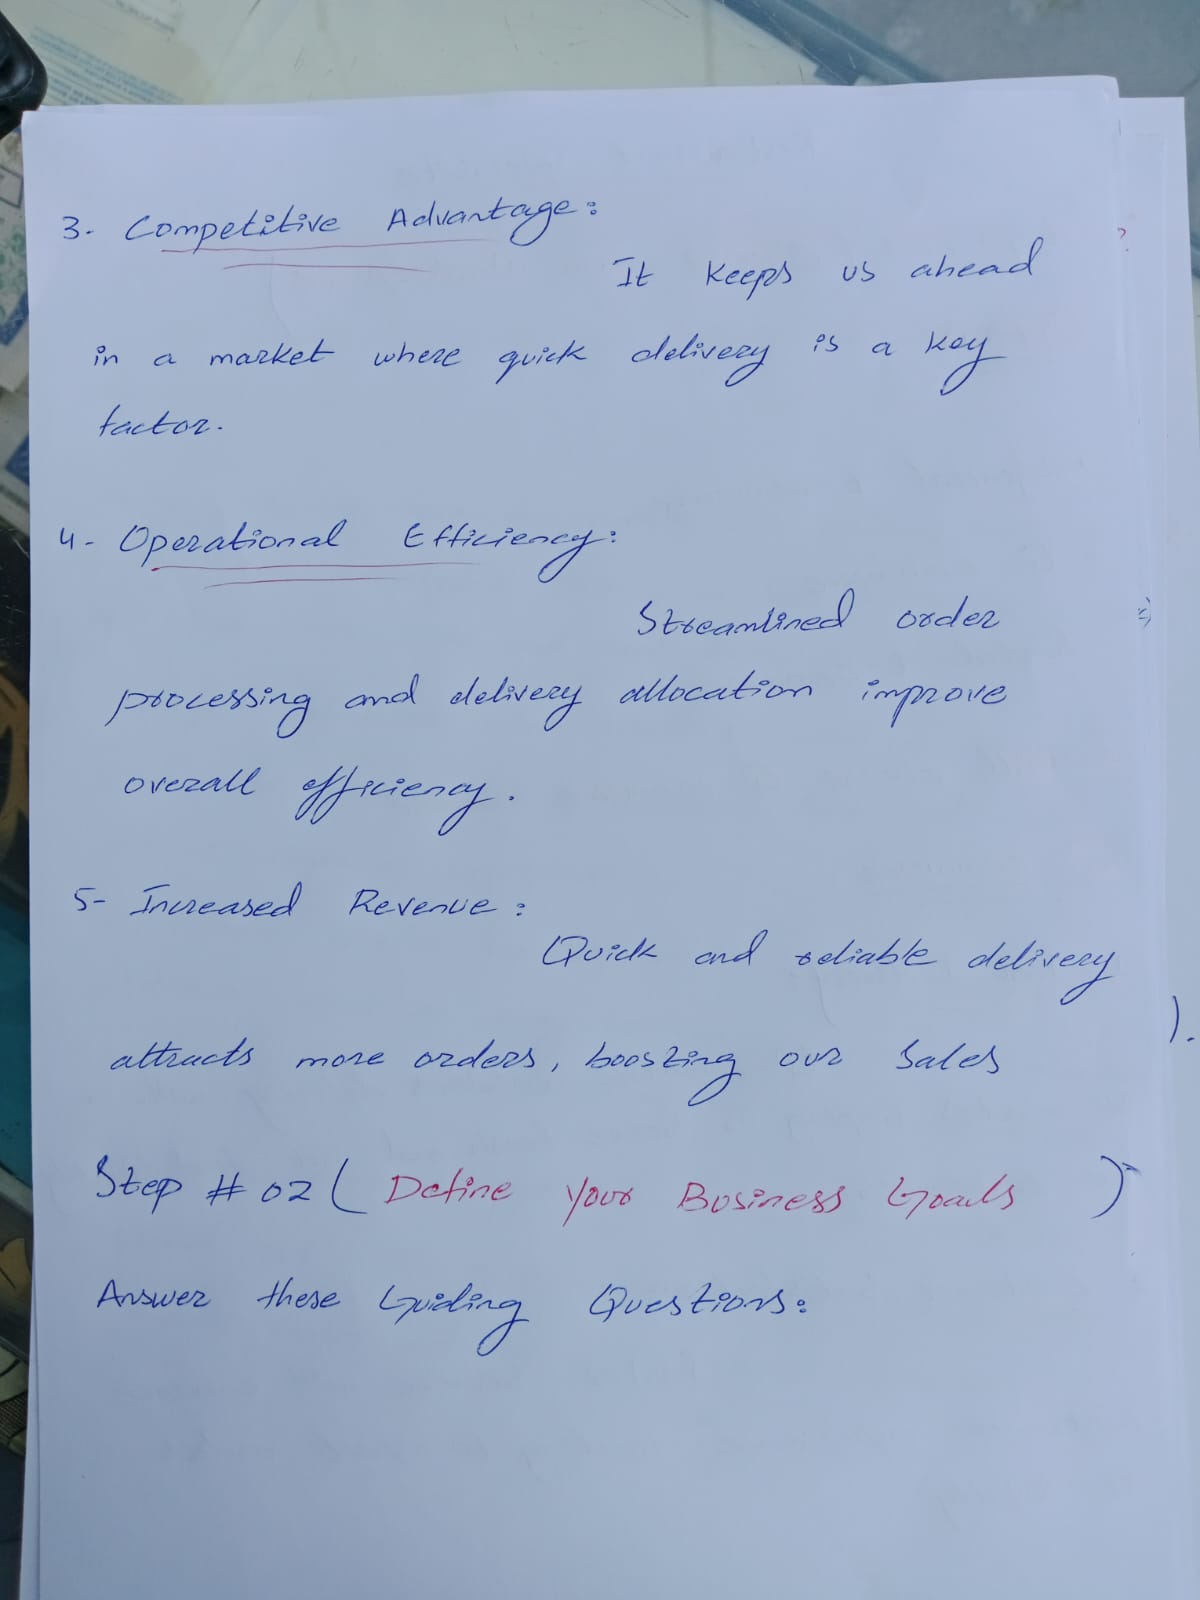 3- Competitive Advantage:
It keeps us ahead
in a market where quick delivery is a key
factor.
4- Operational Efficiency:
Streamlined order
processing and delivery allocation improve
overall efficiency.
5- Increased Revenue:
Quick and reliable delivery
attracts more orders, boosting our sales
Step # 02 ( Define Your Business Goals )
Answer these Guiding Questions: